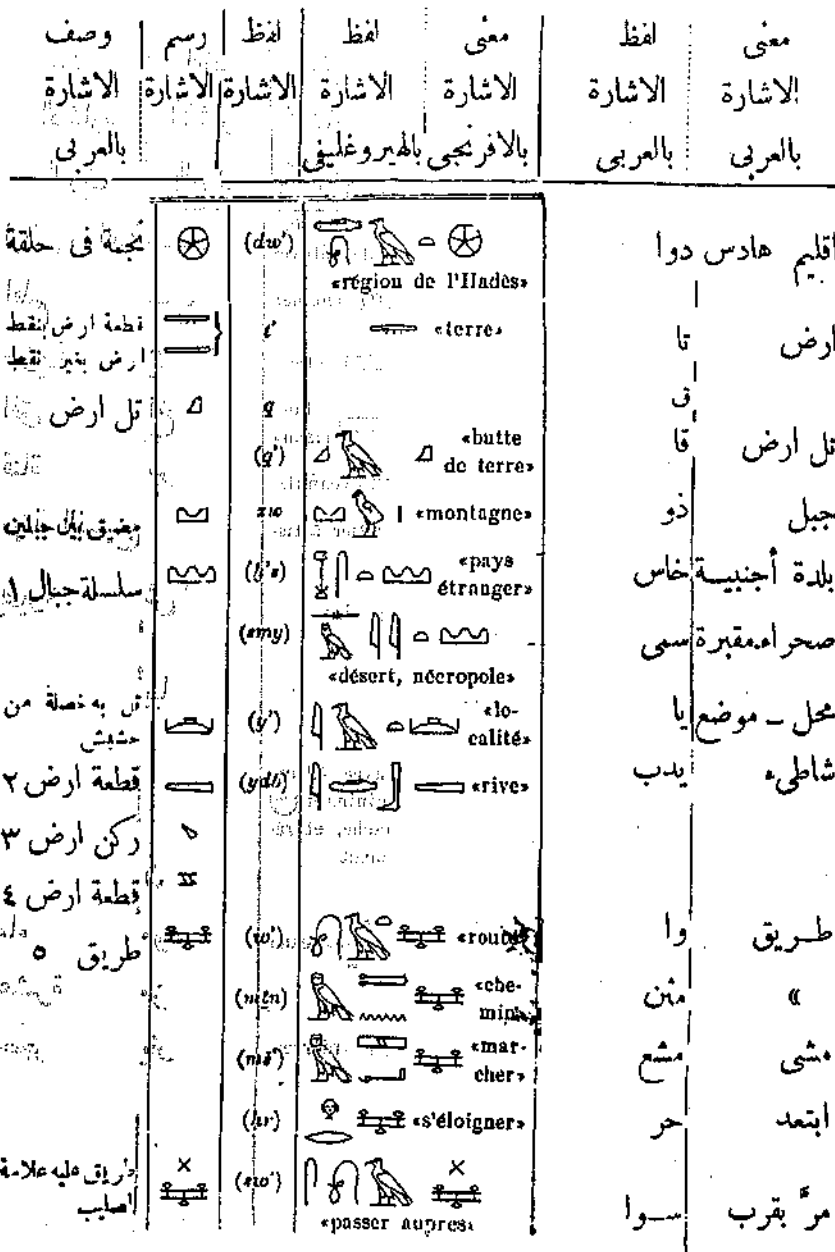 معنى الاشارة بالعربى | لفظ الاشارة بالعربى | معنى الاشارة بالافرنجى | لفظ الاشارة بالهيروغليفى | لفظ الاشارة | رسم الاشارة | وصف الاشارة بالعربى
اقليم هادس دوا «région de l'Hadès» (dw') نجمة فى حلقة
ارض تا «terre» t' قطعة ارض بنقط
ارض بغير نقط
ق q تل ارض
تل ارض قا «butte de terre» (q')
جبل ذو «montagne» مضيق بين جبلين
بلدة أجنبيـة خاس «pays étranger» سلسلة جبال ١
صحراء.مقبرة سمى «désert, nécropole» (smy)
محل ـ موضع يا «localité» (y') تل به خصلة من حشيش
شاطىء يدب «rive» (ydb) قطعة ارض ٢
ركن ارض ٣
قطعة ارض ٤
طـريق وا «route» (w') طريق ٥
» مثن «chemin» (mtn)
مشى مشع «marcher»
ابتعد حر «s'éloigner» (hr)
مرَّ بقرب سـوا «passer auprès» (sw') طريق عليه علامة الصليب